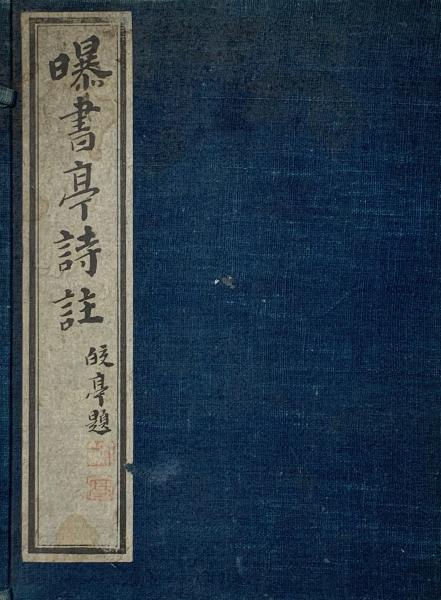 曝書亭詩註
皎亭題